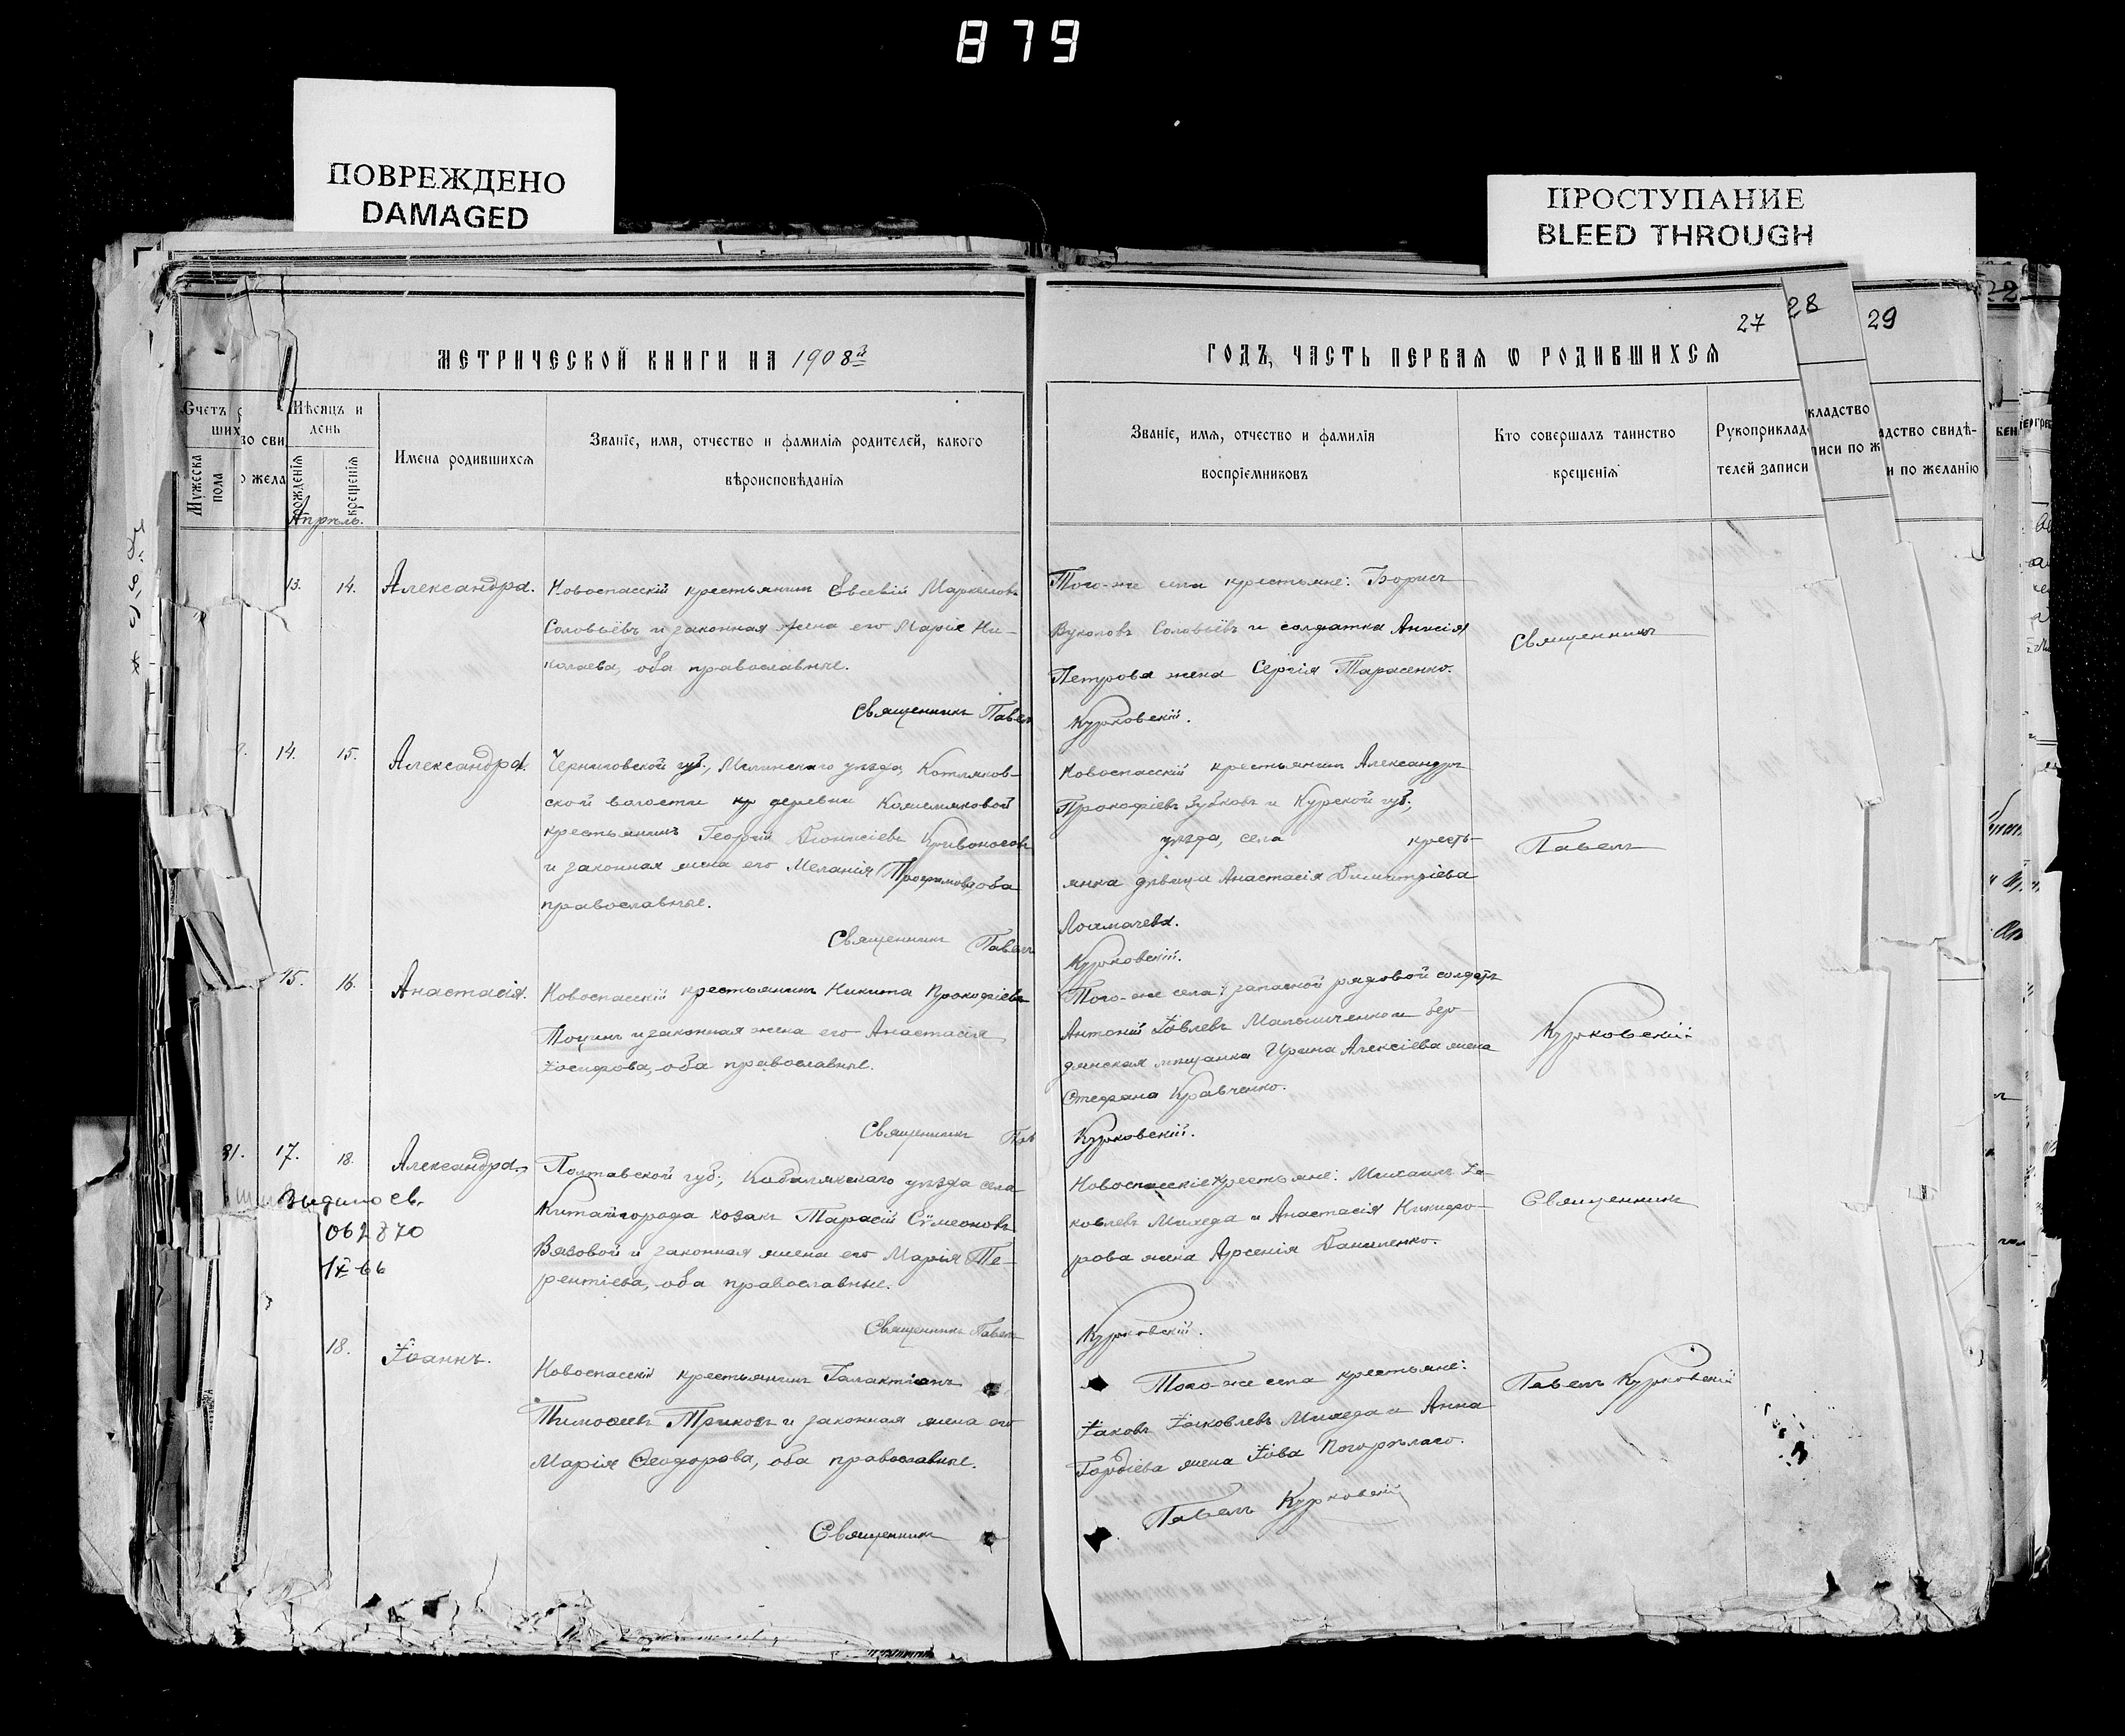 879
ПОВРЕЖДЕНО
DAMAGED
ПРОСТУПАНИЕ
BLEED THROUGH
27 28 29
МЕТРИЧЕСКОЙ КНИГИ НА 1908й
Счетъ
ших
Мужеска пола
во сви
о жела
Мѣсяцъ и день
рожденія
крещенія
Имена родившихся
Званіе, имя, отчество и фамилія родителей, какого
вѣроисповѣданія
Апрѣль.
13. 14. Александра.
Новоспасскій крестьянинъ Евсевій Маркеловъ
Соловьёвъ и законная жена его Марія Ни-
колаева, оба православные.
Священникъ Павелъ
14. 15. Александра.
Черниговской губ., Мглинскаго уѣзда, Котляков-
ской волости деревни
крестьянинъ Георгій Діонисіевъ Кривоносовъ
и законная жена его Меланія Трофимова, оба
православные.
Священникъ Павелъ
15. 16. Анастасія.
Новоспасскій крестьянинъ Никита Прокофіевъ
и законная жена его Анастасія
Іосифова, оба православные.
Священникъ Пав
31. 17. 18. Александра.
Выдано св.
062870
IX 66
Полтавской губ., Кобелякскаго уѣзда села
Китайгорода козакъ Тарасій Сѵмеоновъ
Вязовой и законная жена его Марія Те-
рентіева, оба православные.
Священникъ Павелъ
18. Іоаннъ.
Новоспасскій крестьянинъ Галактіонъ
Тимоѳеевъ Триковъ и законная жена его
Марія Ѳеодорова, оба православные.
Священникъ
ГОДЪ, ЧАСТЬ ПЕРВАЯ Ѡ РОДИВШИХСЯ
Званіе, имя, отчество и фамилія
воспріемниковъ
Кто совершалъ таинство
крещенія
Рукоприклад
телей записи
кладство
писи по ж
адство свидѣ-
и по желанію
Того-же села крестьяне: Борисъ
Вуколовъ Соловьёвъ и солдатка Анисія
Петрова жена Сергія Тарасенко.
Курковскій.
Новоспасскій крестьянинъ Александръ
Прокофіевъ Зубковъ и Курской губ.,
уѣзда, села кресть-
янка дѣвица Анастасія Димитріева
Курковскій.
Того-же села: запасной рядовой солдатъ
Антоній Іовлевъ и бер-
дянская мѣщанка Ирина Алексіева жена
Стефана Кравченко.
Курковскій.
Новоспасскіе крестьяне: Михаилъ Іа-
ковлевъ Михеда и Анастасія Никифо-
рова жена Арсенія Даниленко.
Курковскій.
Того-же села крестьяне:
Іаковъ Іаковлевъ Михеда и Анна
Гордіева жена Іова Погорѣлаго.
Павелъ Курковскій
Священникъ
Павелъ
Курковскій.
Священникъ
Павелъ Курковскій